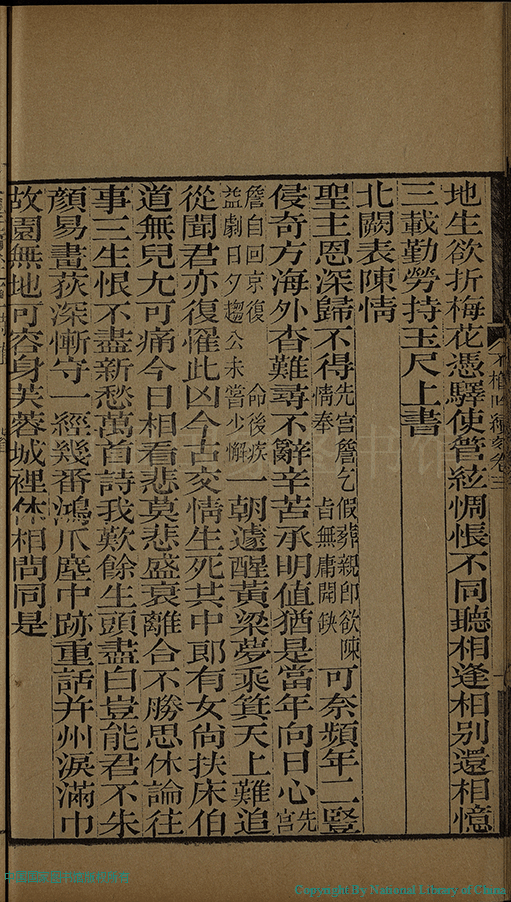 地生欲折梅花憑驛使管絃惆悵不同聽相逢相別還相憶
三載勤勞持玉尺上書
北闕表陳情
聖主恩深歸不得先宮詹乞假葬親即欲陳情奉旨無庸開缺可奈頻年二豎
侵奇方海外杳難尋不辭辛苦承明值猶是當年向日心先宮
詹自回京復命後疾益劇日夕趨公未嘗少懈一朝遽醒黃粱夢乘箕天上難追
從聞君亦復懼此凶今古交情生死共中郎有女尙扶床伯
道無兒尤可痛今日相看悲莫悲盛衰離合不勝思休論往
事三生恨不盡新愁萬首詩我歎餘生頭盡白豈能君不朱
顏易畫荻深慚守一經幾番鴻爪塵中跡重話并州淚滿巾
故園無地可容身芙蓉城裡休相問同是
Copyright By National Library of China